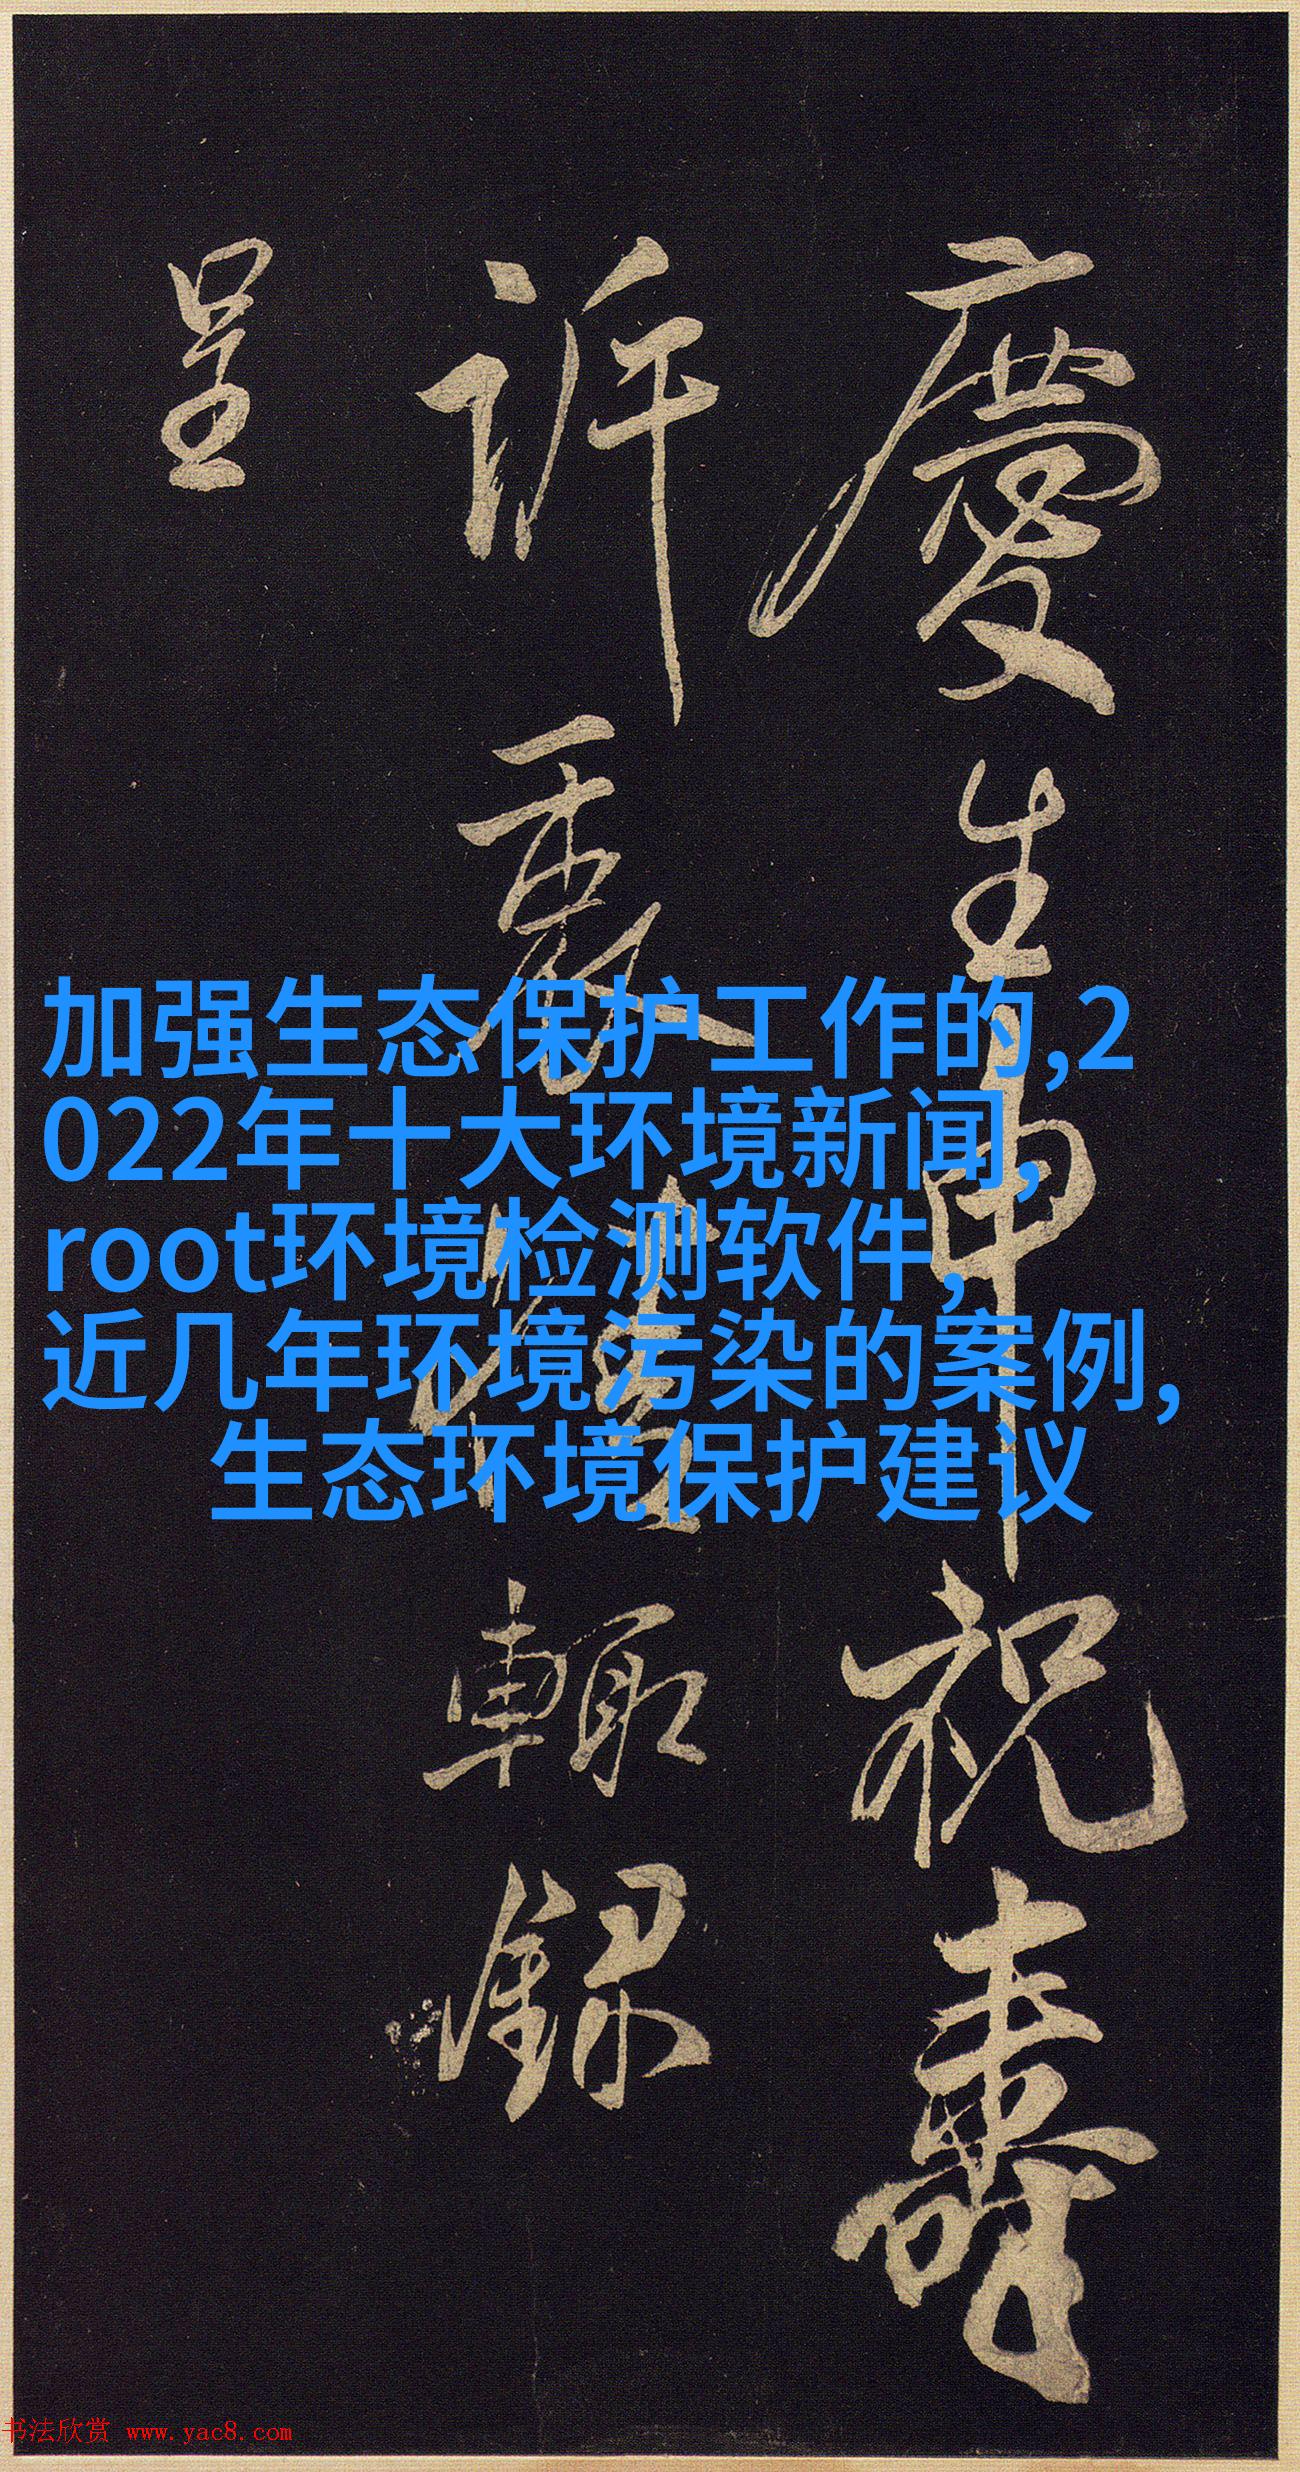 慶生申祝壽
訢裹忭輒録
呈
加强生态保护工作的,2
022年十大环境新闻,
root环境检测软件,
近几年环境污染的案例,
生态环境保护建议
书法欣赏 www.yac8.com